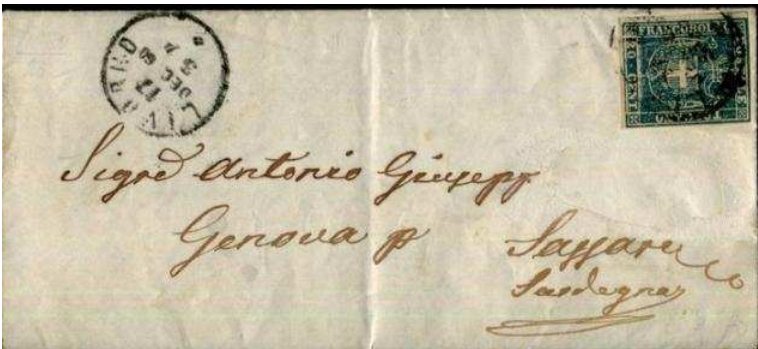 LIVORNO
17
DEC 60
3
FRANCOBOLLO
Sigre Antonio Giusepp
Genova p Sassari
Sardegna